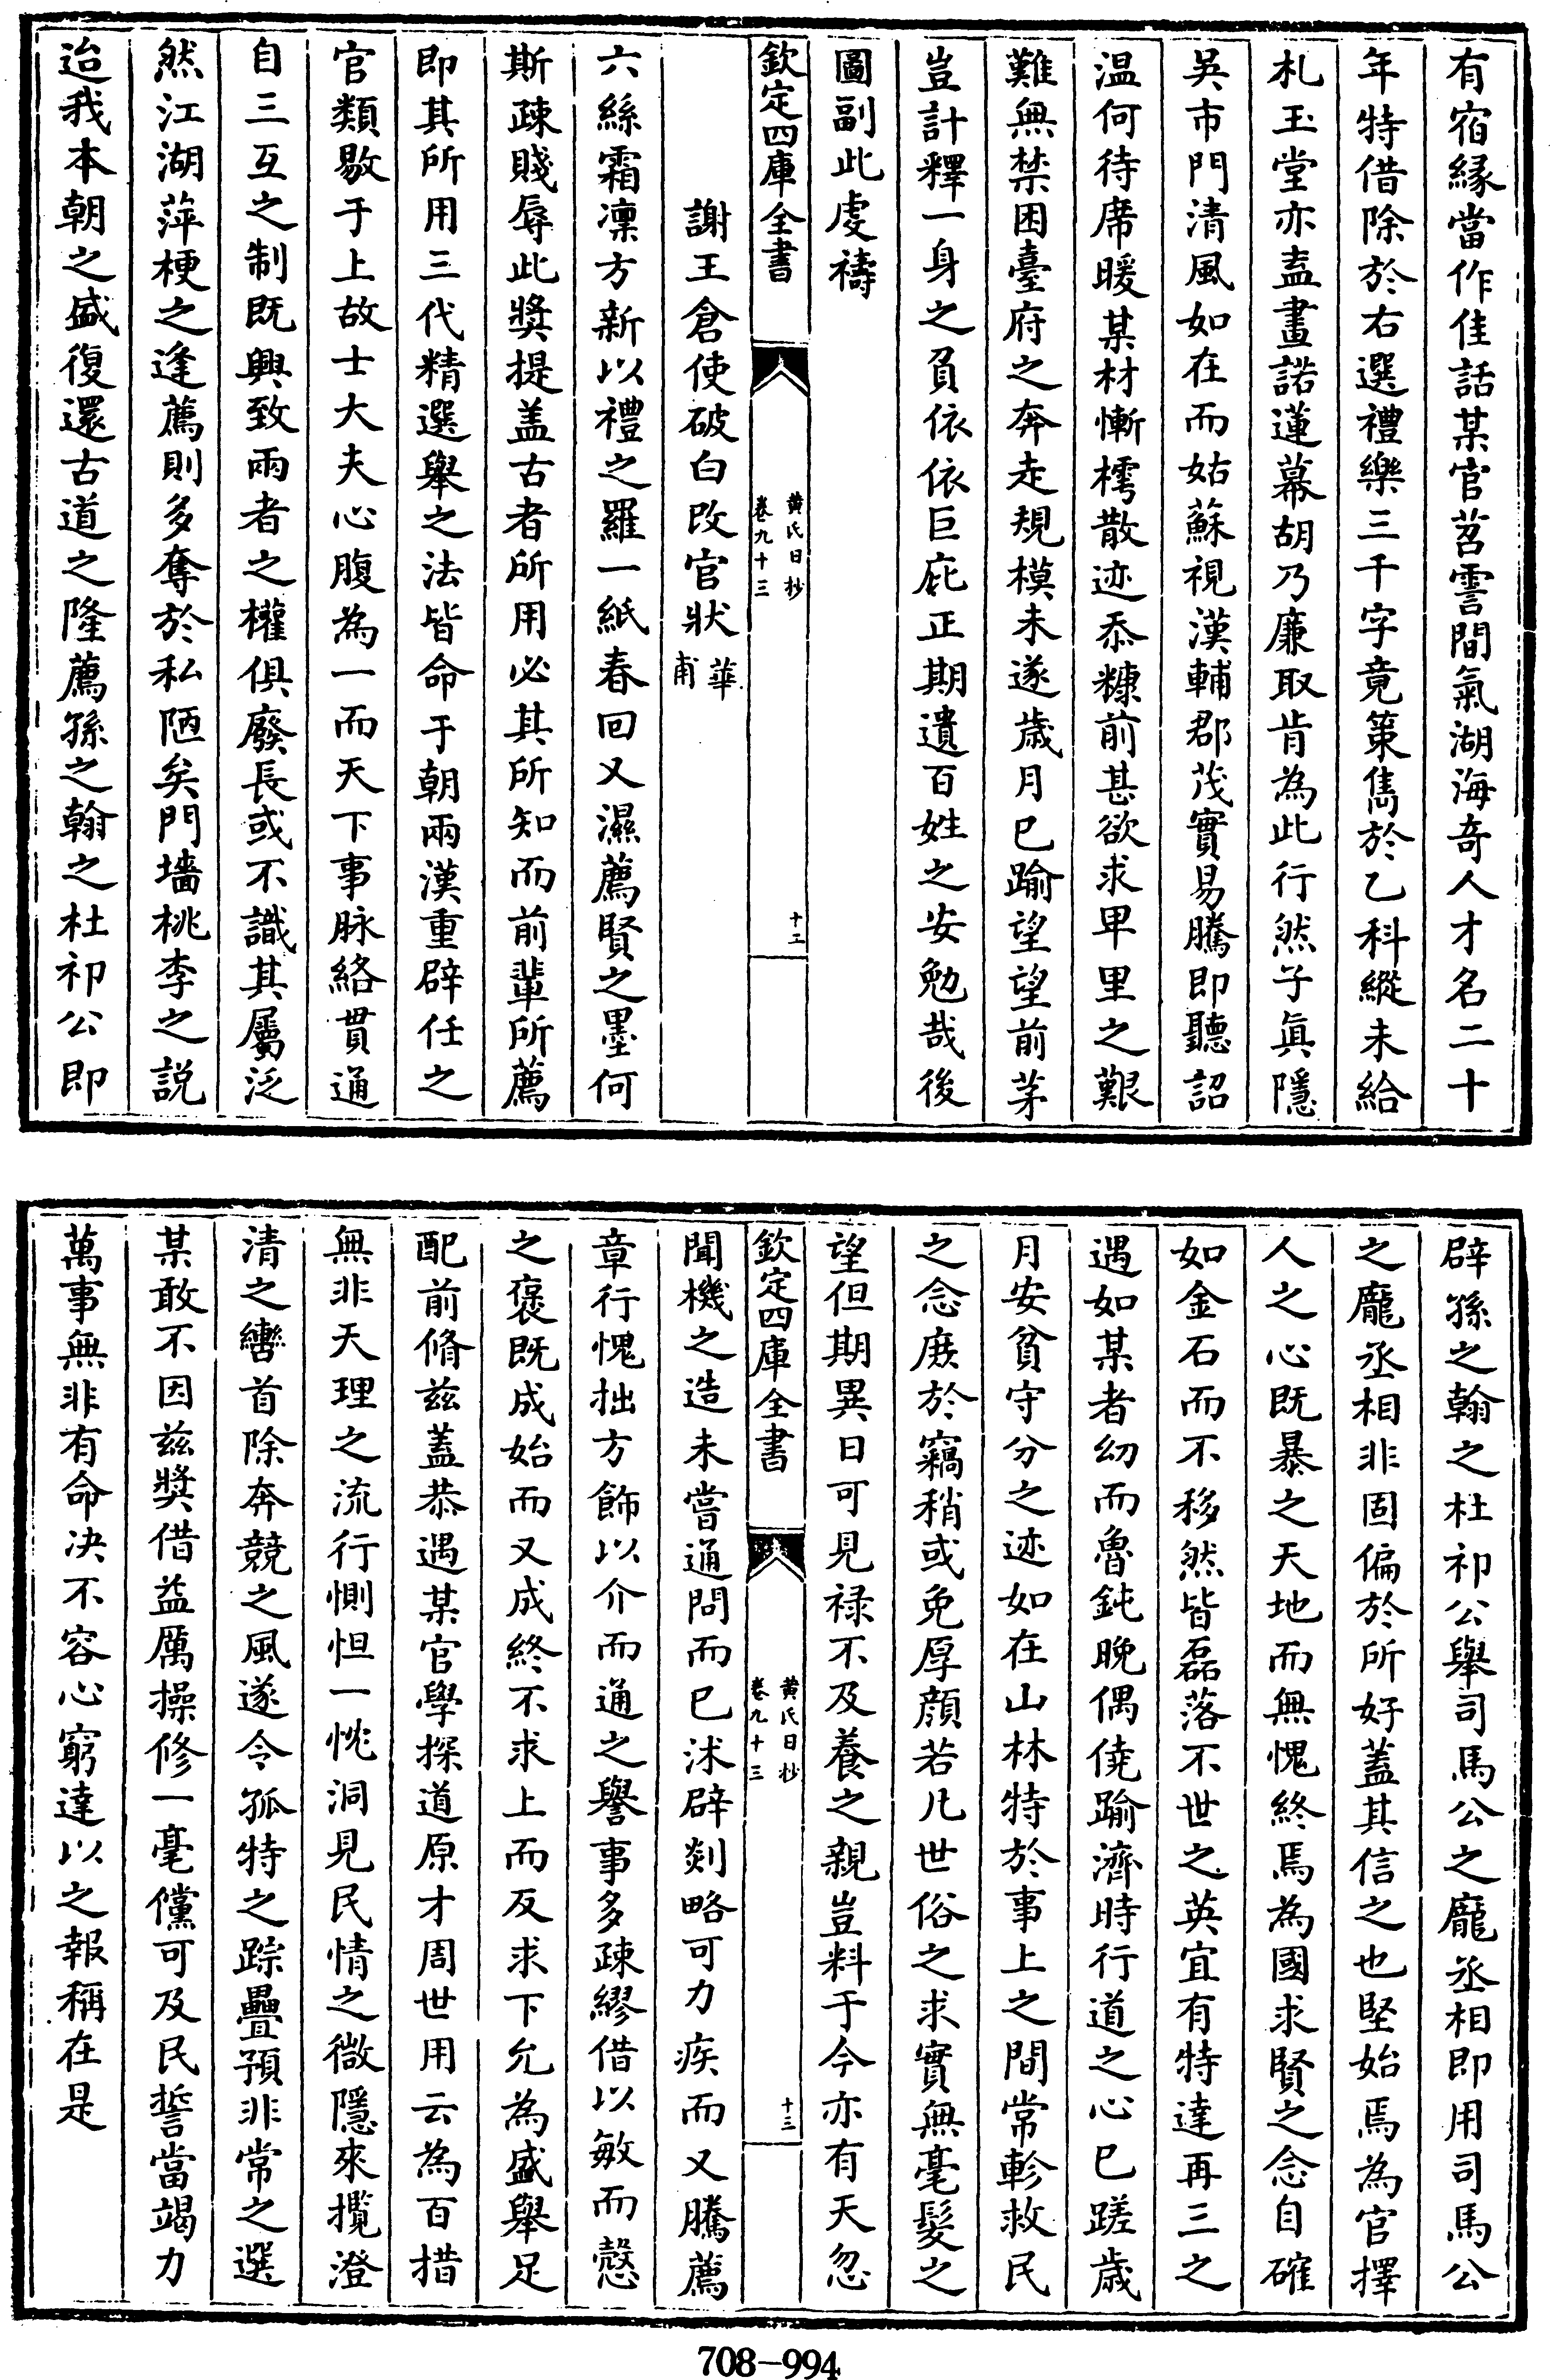 有宿緣當作佳話某官苕霅間氣湖海竒人才名二十
年特借除於右選禮樂三千字竟策雋於乙科縱未給
札玉堂亦盍畫諾蓮幕胡乃廉取肯為此行然子真隱
吳市門清風如在而姑蘇視漢輔郡茂實易騰即聽詔
温何待席暖某材慚樗散迹忝糠前甚欲求卑里之艱
難無禁困臺府之奔走規模未遂歲月已踰望望前茅
豈計釋一身之負依依巨庇正期遺百姓之安勉哉後
圖副此虔禱
欽定四庫全書
黄氏日抄
卷九十三
十二
謝王倉使破白改官狀華甫
六絲霜凛方新以禮之羅一紙春回又濕薦賢之墨何
斯疎賤辱此奬提盖古者所用必其所知而前輩所薦
即其所用三代精選舉之法皆命于朝兩漢重辟任之
官類敭于上故士大夫心腹為一而天下事脉絡貫通
自三互之制既興致兩者之權俱廢長或不識其屬泛
然江湖萍梗之逢薦則多奪於私陋矣門墻桃李之説
迨我本朝之盛復還古道之隆薦孫之翰之杜祁公即
辟孫之翰之杜祁公舉司馬公之龎丞相即用司馬公
之龎丞相非固偏於所好蓋其信之也堅始焉為官擇
人之心既暴之天地而無愧終焉為國求賢之念自確
如金石而不移然皆磊落不世之英宜有特達再三之
遇如某者幼而魯鈍晚偶僥踰濟時行道之心已蹉歲
月安貧守分之迹如在山林特於事上之間常軫救民
之念庶於竊稍或免厚顔若凡世俗之求實無毫髮之
望但期異日可見禄不及養之親豈料于今亦有天忽
欽定四庫全書
黄氏日抄
卷九十三
十三
聞機之造未嘗通問而已沭辟剡略可力疾而又騰薦
章行愧拙方飾以介而通之譽事多疎繆借以敏而慤
之褒既成始而又成終不求上而反求下允為盛舉足
配前脩兹蓋恭遇某官學探道原才周世用云為百措
無非天理之流行惻怛一忱洞見民情之微隱來攬澄
清之轡首除奔競之風遂令孤特之踪疊預非常之選
某敢不因兹奬借益厲操修一毫儻可及民誓當竭力
萬事無非有命决不容心窮達以之報稱在是
708-994